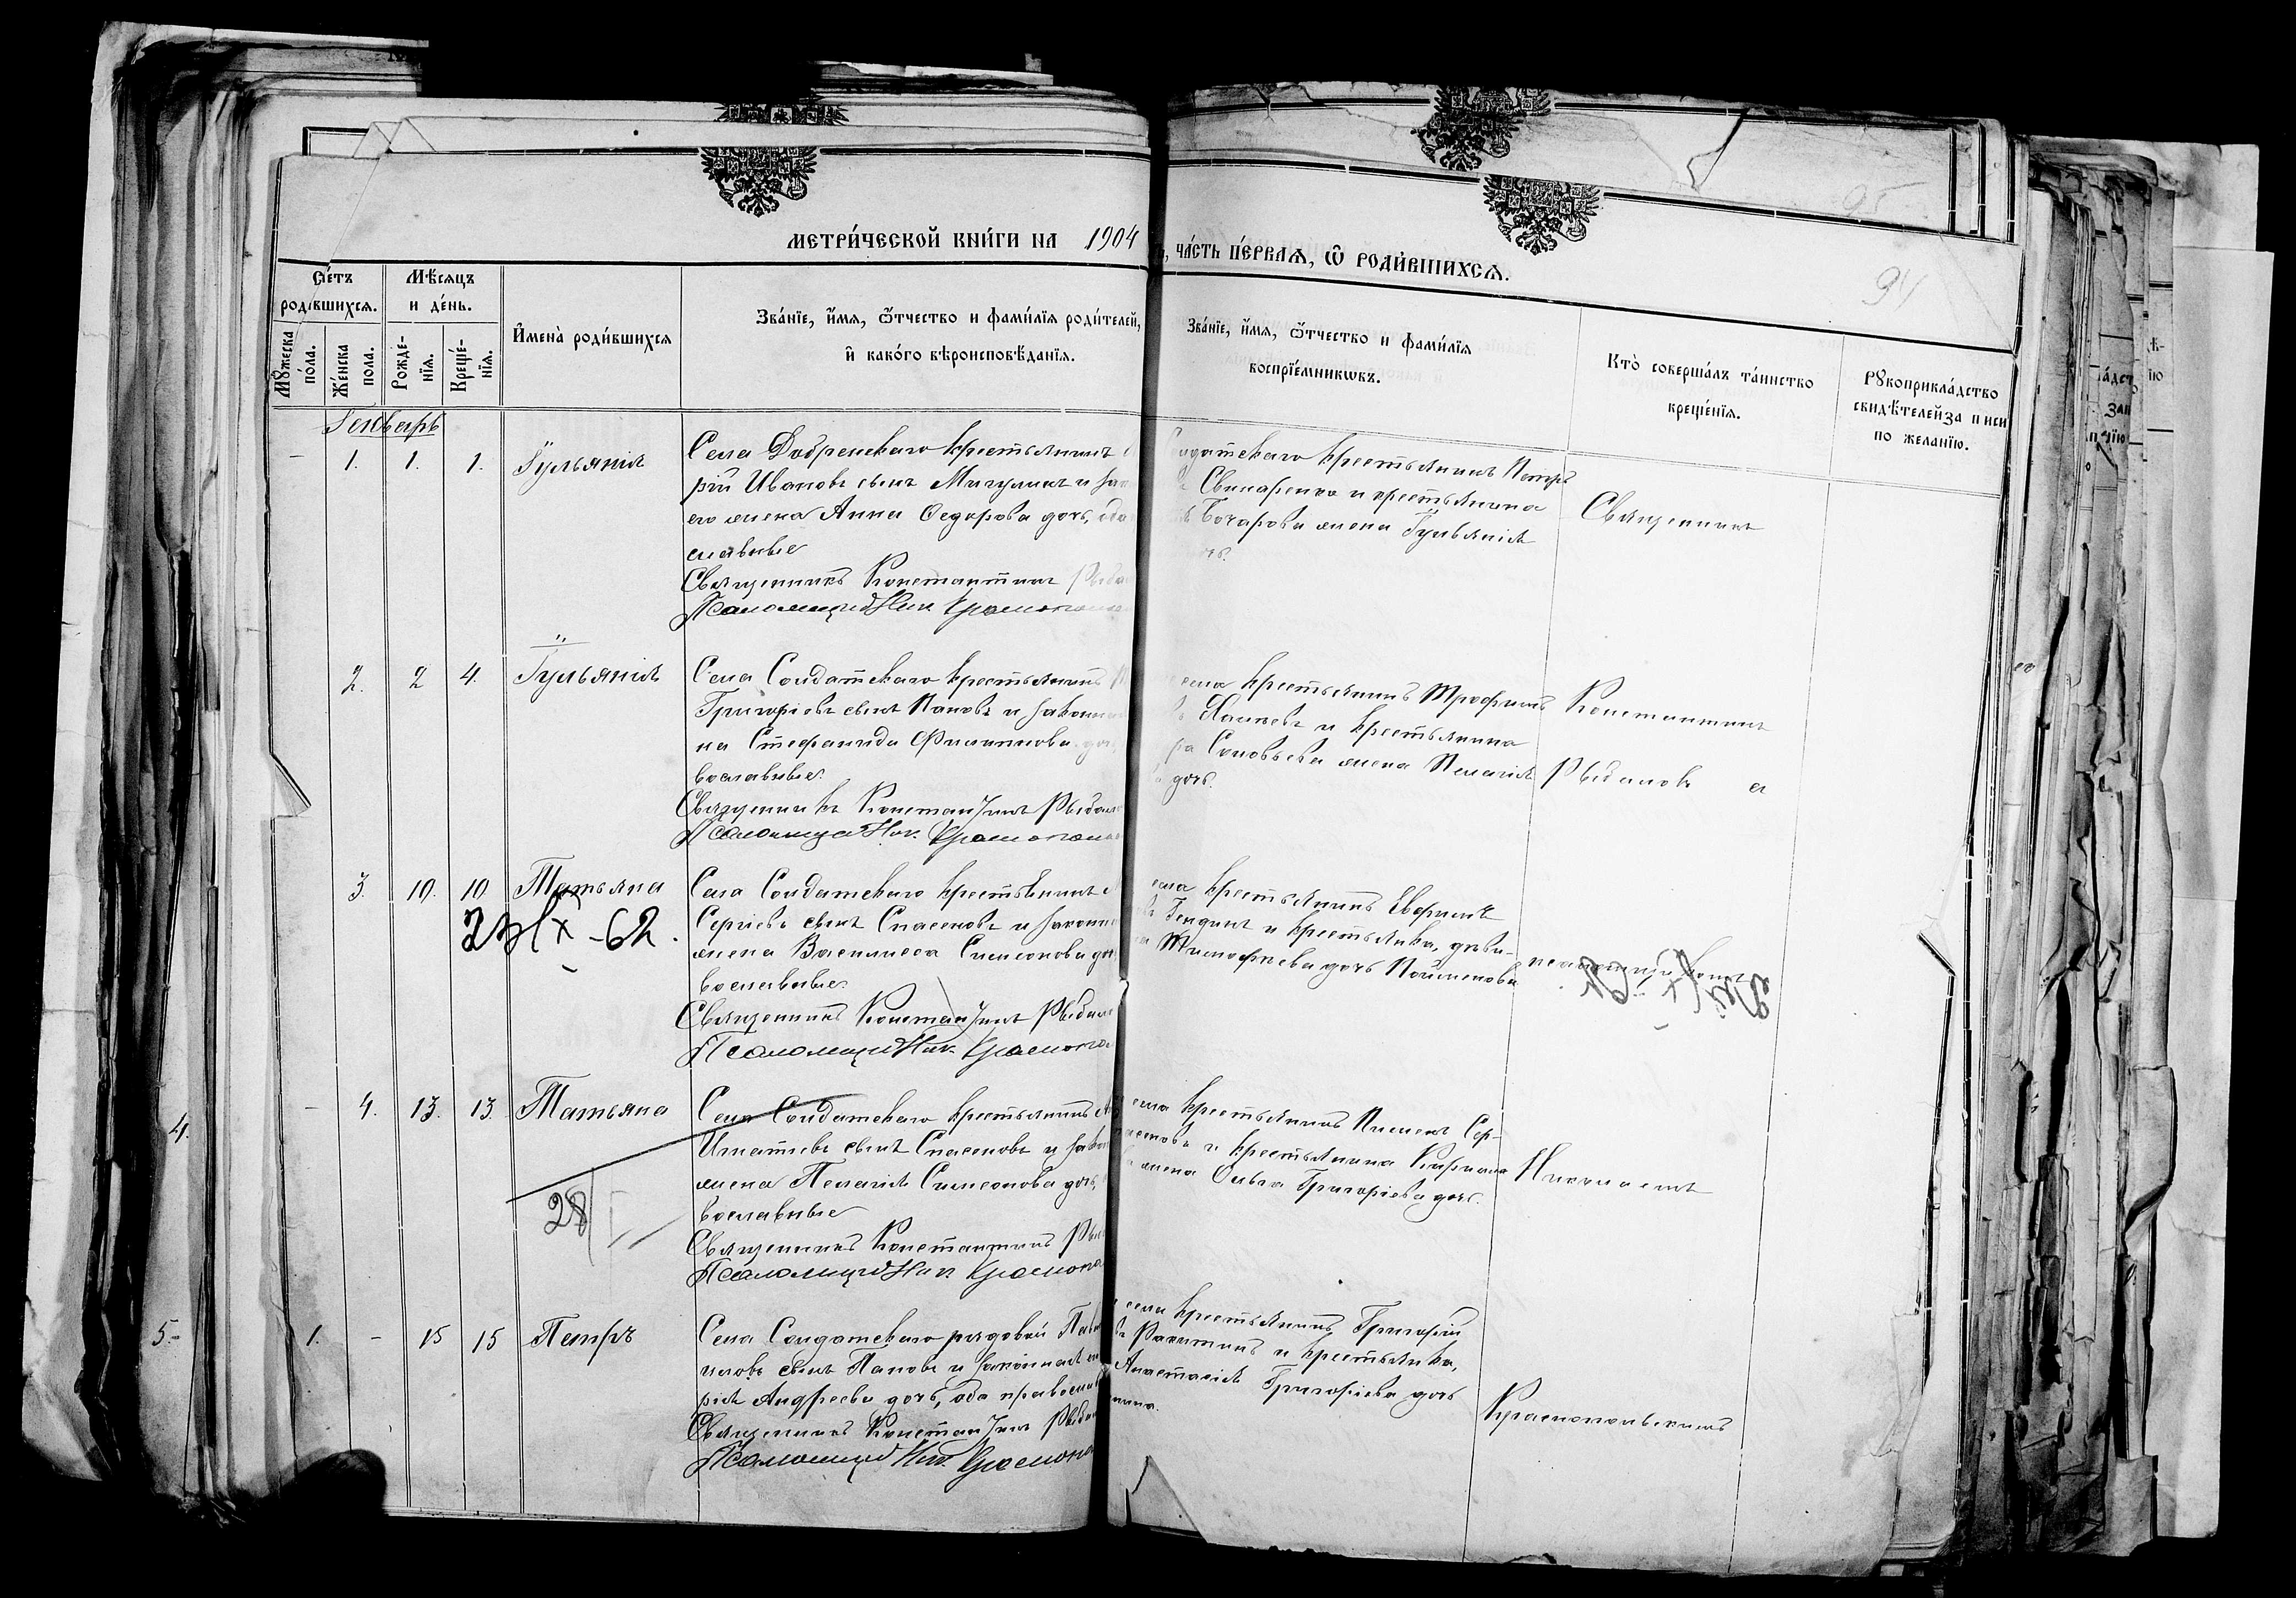 МЕТРИ́ЧЕСКОЙ КНИ́ГИ НА 1904
, ЧА́СТЬ ПЕ́РВАЯ, Ѡ РОДИ́ВШИХСЯ.
94
Сче́тъ родившихся.
Мѣ́сяцъ и де́нь.
Мꙋ́жеска по́ла.
Же́нска пола.
Рожде-нїя.
Креще́-нїя.
И҆мена̀ роди́вшихся
Зва́нїе, и҆́мя, ѻ҆́тчество и фами́лїя роди́телей,
и҆ како́го вѣроисповѣ́данїя.
Зва́нїе, и҆́мя, ѻ҆́тчество и фами́лїя
воспрїе́мникѡвъ.
Кто̀ соверша́лъ та́инство
креще́нїя.
Рꙋкоприкла́дство
свидѣ́телей за писи
по жела́нїю.
Январь
- 1. 1. 1. Іульянія
Села Добренскаго крестьянинъ
рій Ивановъ сынъ Мигулинъ и зак
его жена Анна Ѳедорова дочь, оба
славные
Священникъ Константинъ Рыба
Псаломщикъ Ник. Краснополь
олдатскаго крестьянинъ Петръ
Свинаренко и крестьянина
Бочарова жена Іульянія
очь.
Священникъ
2. 2 4. Іульянія
Села Солдатскаго крестьянинъ
Григоріевъ сынъ Пановъ и законн
на Стефанида Филиппова доч
вославные.
Священникъ Константинъ Рыбал
Псаломщикъ Ник. Краснополь
села крестьянинъ Трофимъ
и крестьянина
Соловьева жена Пелагія
дочь.
Константинъ
Рыбаловъ и
3. 10. 10 Татьяна
23/IX-62.
Села Солдатскаго крестьянинъ
Сергіевъ сынъ Спасеновъ и законн
жена Василисса Симеонова доч
вославные.
Священникъ Константинъ Рыбал
Псаломщикъ Ник. Краснопо
села крестьянинъ Евфимъ
въ Гендинъ и крестьянка, дѣви-
Тимофеева дочь Пойменова
псаломщикомъ
- 4. 13. 13 Татьяна
28
Села Солдатскаго крестьянинъ
Игнатіевъ сынъ Спасеновъ и зако
жена Пелагія Симеонова дочь,
вославные
Священникъ Константинъ Рыб
Псаломщикъ Ник Краснопо
села крестьянинъ Пименъ Сер-
пасеновъ и крестьянина Кирилла
жена Ольга Григоріева дочь.
Николаемъ
4.
5-
1. - 15 15 Петръ
Села Солдатскаго рядовой Пав
иловъ сынъ Пановъ и законная
рія Андреева дочь, оба правосла
Священникъ Константинъ Рыба
Псаломщикъ Ник. Краснопо
села крестьянинъ Григорій
въ Ракитинъ и крестьянка,
Анастасія Григоріева дочь
нина.
Краснопольскимъ